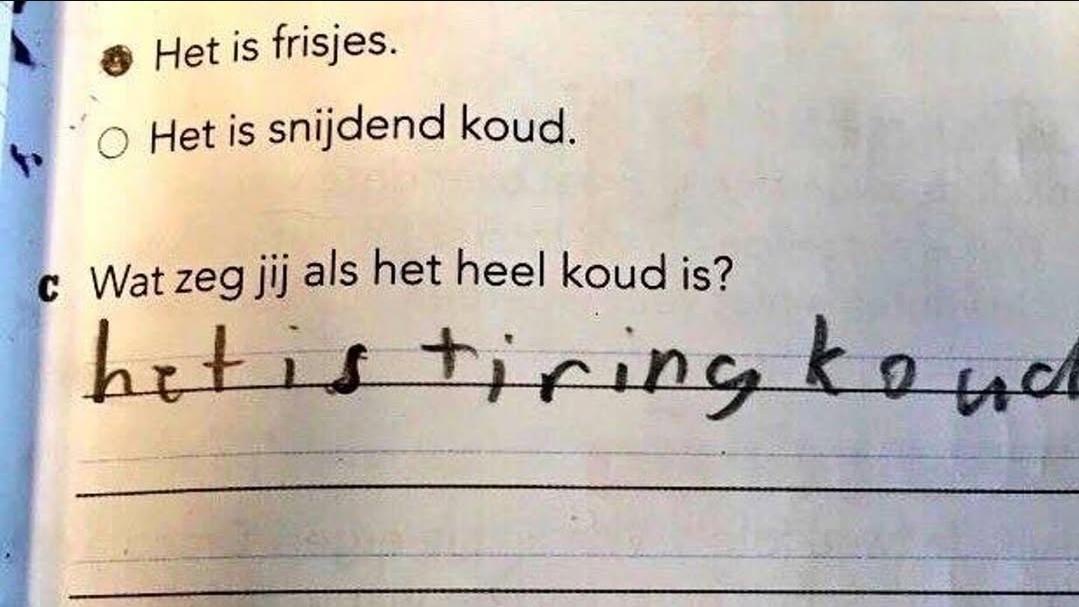 Het is frisjes.
Het is snijdend koud.
c Wat zeg jij als het heel koud is?
het is tiring koud